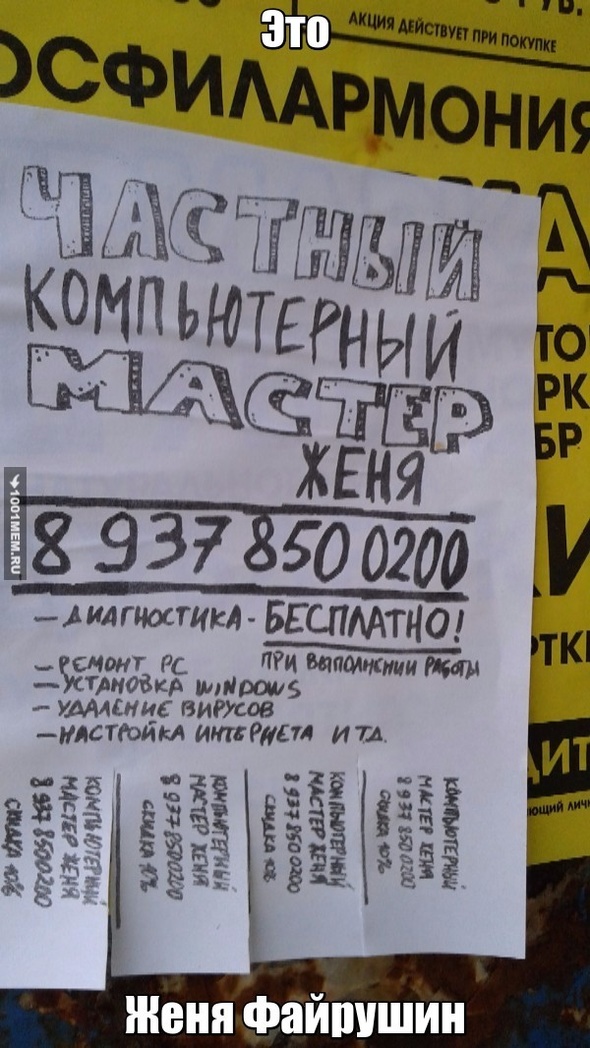 Это
АКЦИЯ ДЕЙСТВУЕТ ПРИ ПОКУПКЕ
ОСФИЛАРМОНИЯ
ЧАСТНЫЙ
КОМПЬЮТЕРНЫЙ
МАСТЕР
ЖЕНЯ
8 937 850 0200
— ДИАГНОСТИКА - БЕСПЛАТНО!
ПРИ ВЫПОЛНЕНИИ РАБОТЫ
— РЕМОНТ PC
— УСТАНОВКА WINDOWS
— УДАЛЕНИЕ ВИРУСОВ
— НАСТРОЙКА ИНТЕРНЕТА И ТД.
КОМПЬЮТЕРНЫЙ
МАСТЕР ЖЕНЯ
8 937 8500200
СКИДКА 10%
КОМПЬЮТЕРНЫЙ
МАСТЕР ЖЕНЯ
8 937 8500200
СКИДКА 10%
КОМПЬЮТЕРНЫЙ
МАСТЕР ЖЕНЯ
8 937 850 0200
СКИДКА 10%
КОМПЬЮТЕРНЫЙ
МАСТЕР ЖЕНЯ
8 937 850 0200
СКИДКА 10%
1001MEM.RU
Женя Файрушин